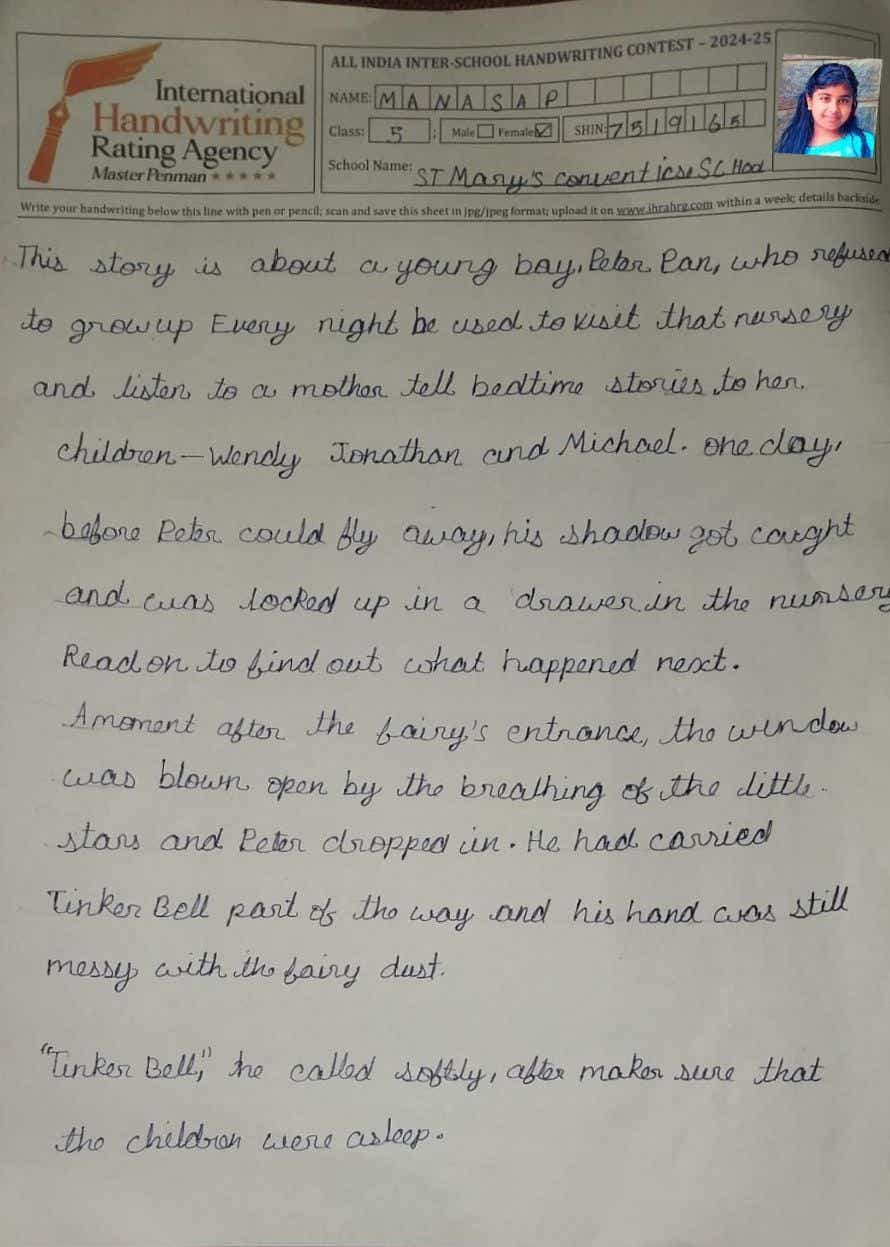 International
Handwriting
Rating Agency
Master Penman ★★★★★
ALL INDIA INTER-SCHOOL HANDWRITING CONTEST – 2024-25
NAME: MANASA P
Class: 5 ; Male Female ✓ SHIN: 7519165
School Name: ST Mary's convent icse SCHool
Write your handwriting below this line with pen or pencil; scan and save this sheet in jpg/jpeg format; upload it on www.ihrahrg.com within a week; details backside
This story is about a young bay, Peter Pan, who refused
to grow up Every night be used to visit that nursery
and listen to a mother tell bedtime stories to her
children – Wendy Jonathan and Michael. one day,
before Peter could fly away, his shadow got caught
and was locked up in a drawer in the nursery
Read on to find out what happened next.
A moment after the fairy's entrance, the window
was blown open by the breathing of the little
stars and Peter dropped in. He had carried
Tinker Bell part of the way and his hand was still
messy with the fairy dust.
"Tinker Bell," he called softly, after maker sure that
the children were asleep.